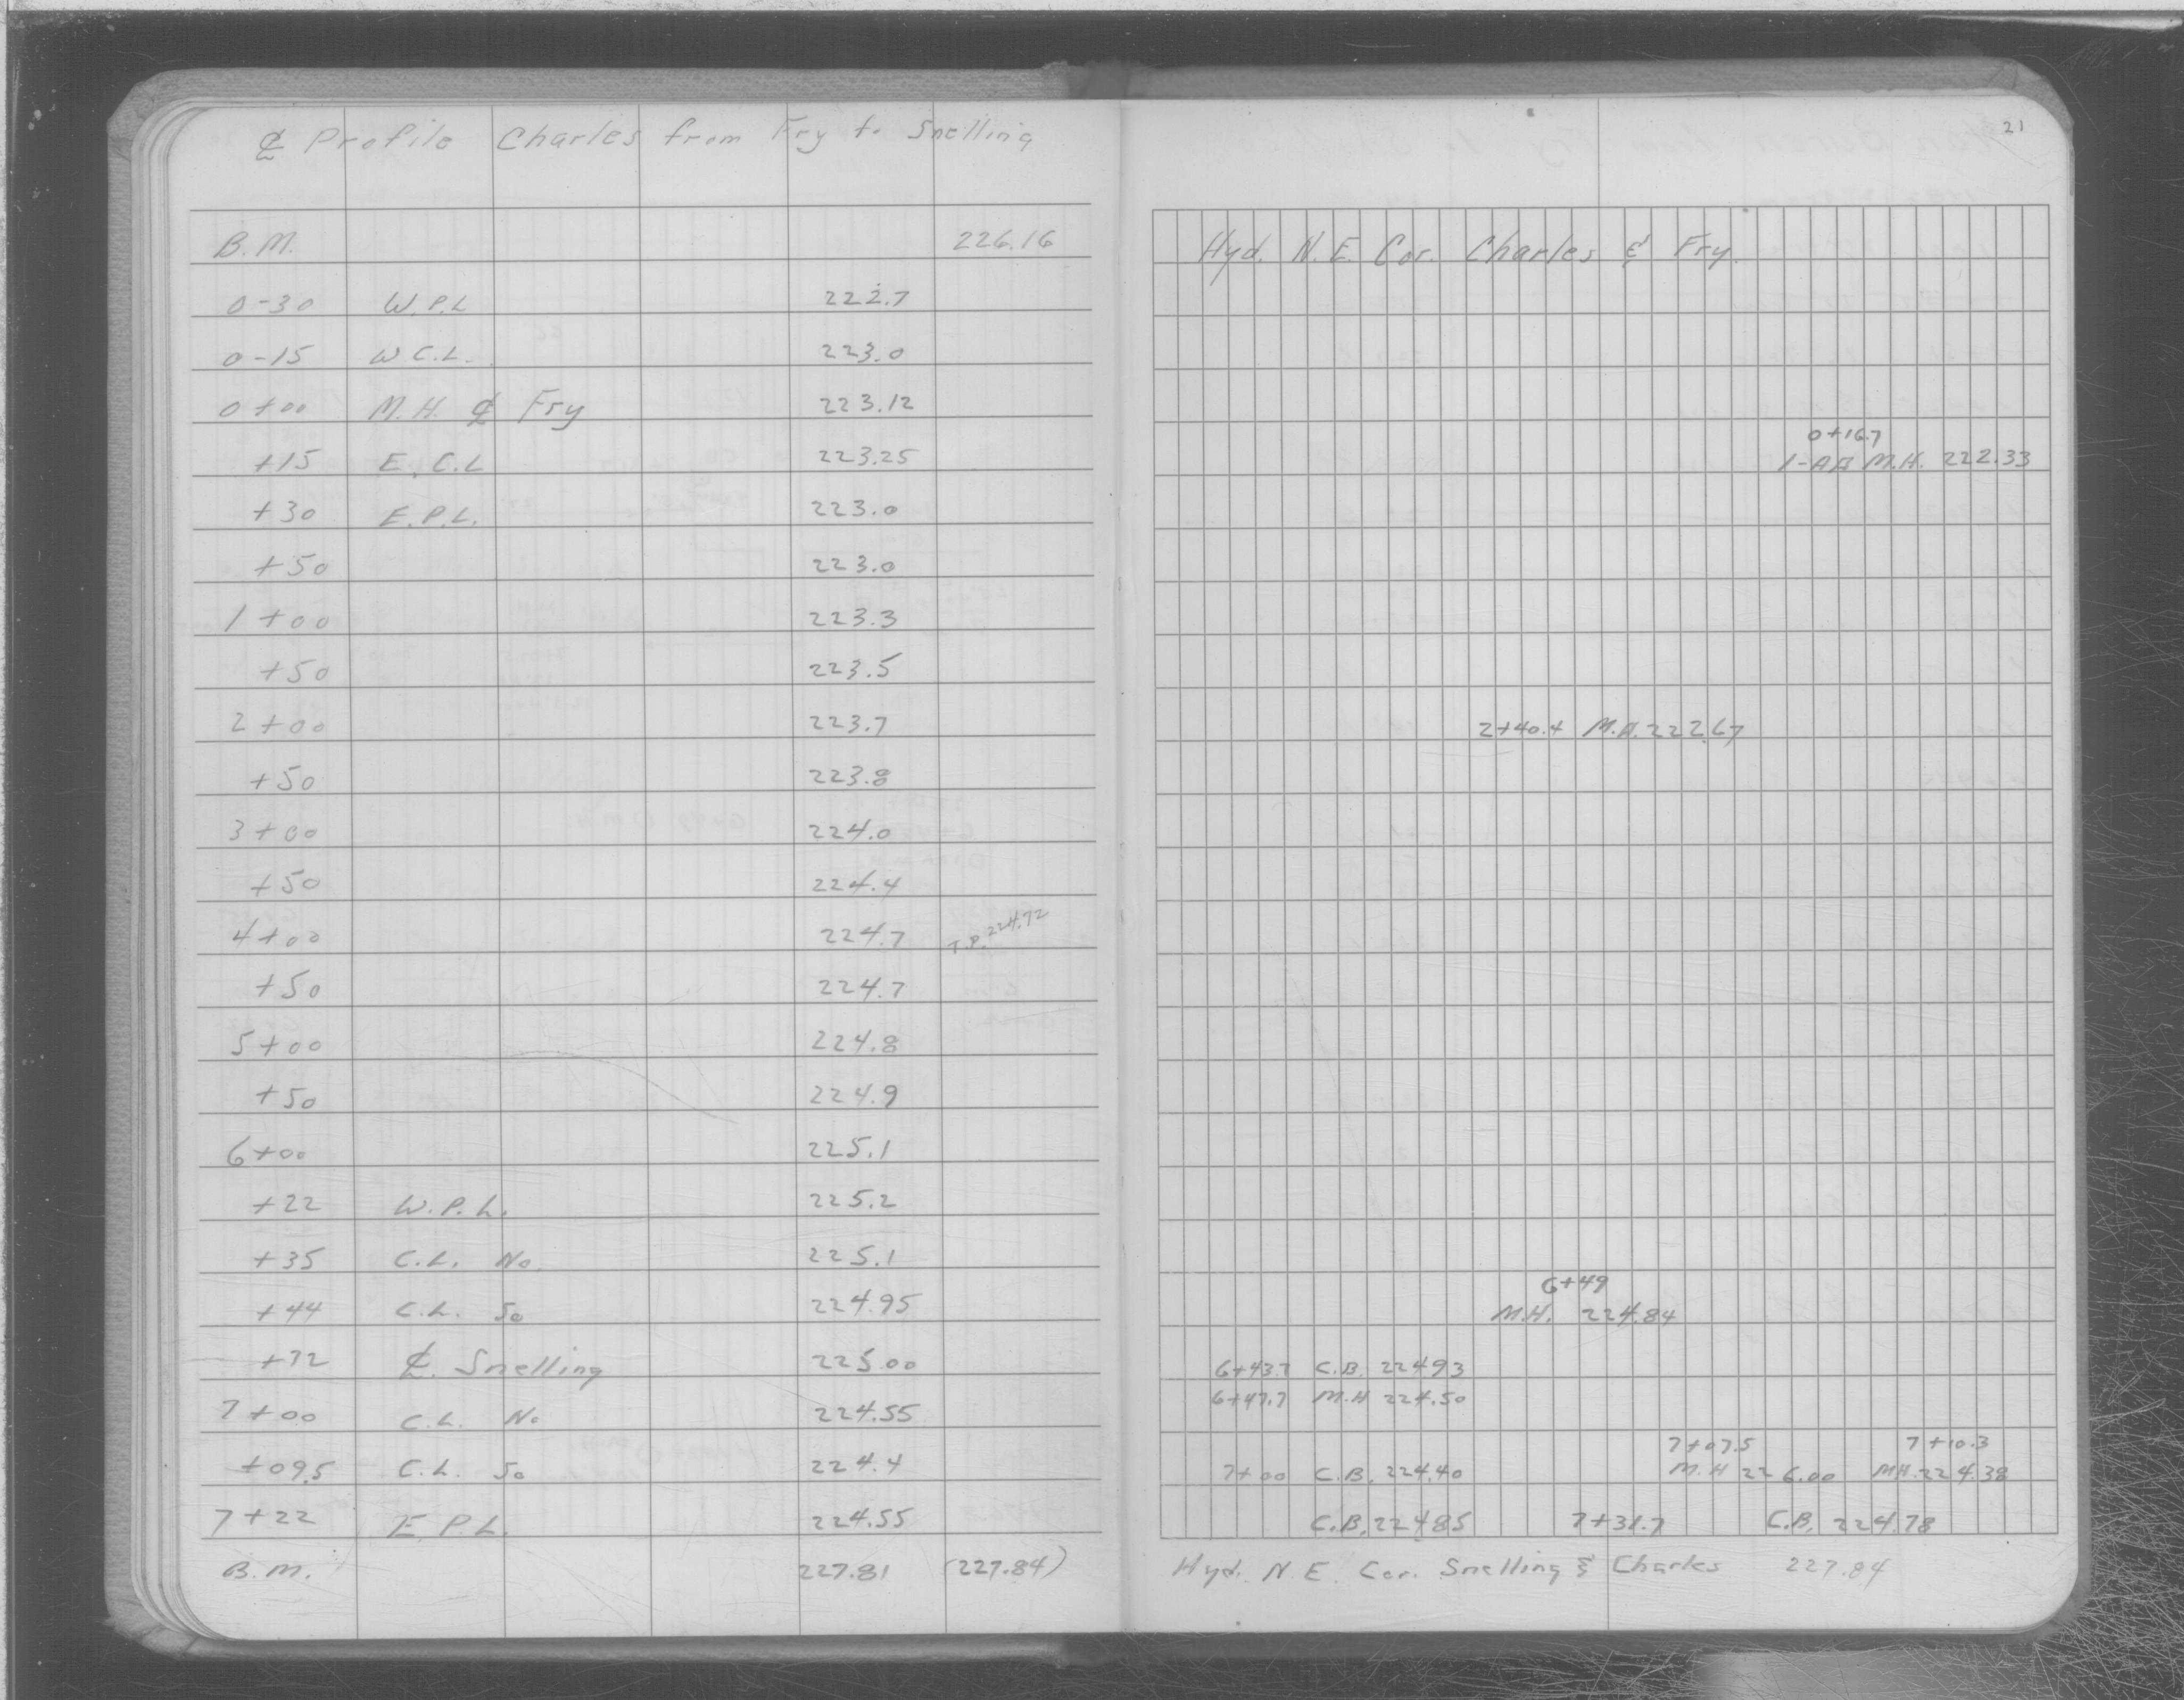 ℄ Profile Charles from Fry to Snelling
B.M. 226.16
0-30 W.P.L 222.7
0-15 W C.L. 223.0
0+00 M.H. ℄ Fry 223.12
+15 E.C.L 223.25
+30 E.P.L. 223.0
+50 223.0
1+00 223.3
+50 223.5
2+00 223.7
+50 223.8
3+00 224.0
+50 224.4
4+00 224.7 T.P. 224.72
+50 224.7
5+00 224.8
+50 224.9
6+00 225.1
+22 W.P.L. 225.2
+35 C.L. No. 225.1
+44 C.L. So 224.95
+72 ℄ Snelling 225.00
7+00 C.L. No 224.55
+09.5 C.L. So 224.4
7+22 E.P.L. 224.55
B.M. 227.81 (227.84)
21
Hyd. N.E. Cor. Charles & Fry.
0+16.7
M.H. 222.33
2+40.4 M.H. 222.67
6+49
M.H. 224.84
6+43.7 C.B. 224.93
6+47.7 M.H 224.50
7+07.5 7+10.3
7+00 C.B. 224.40 M.H 226.00 MH. 224.38
C.B. 224.85 7+31.7 C.B. 224.78
Hyd. N.E. Cor. Snelling & Charles 227.84